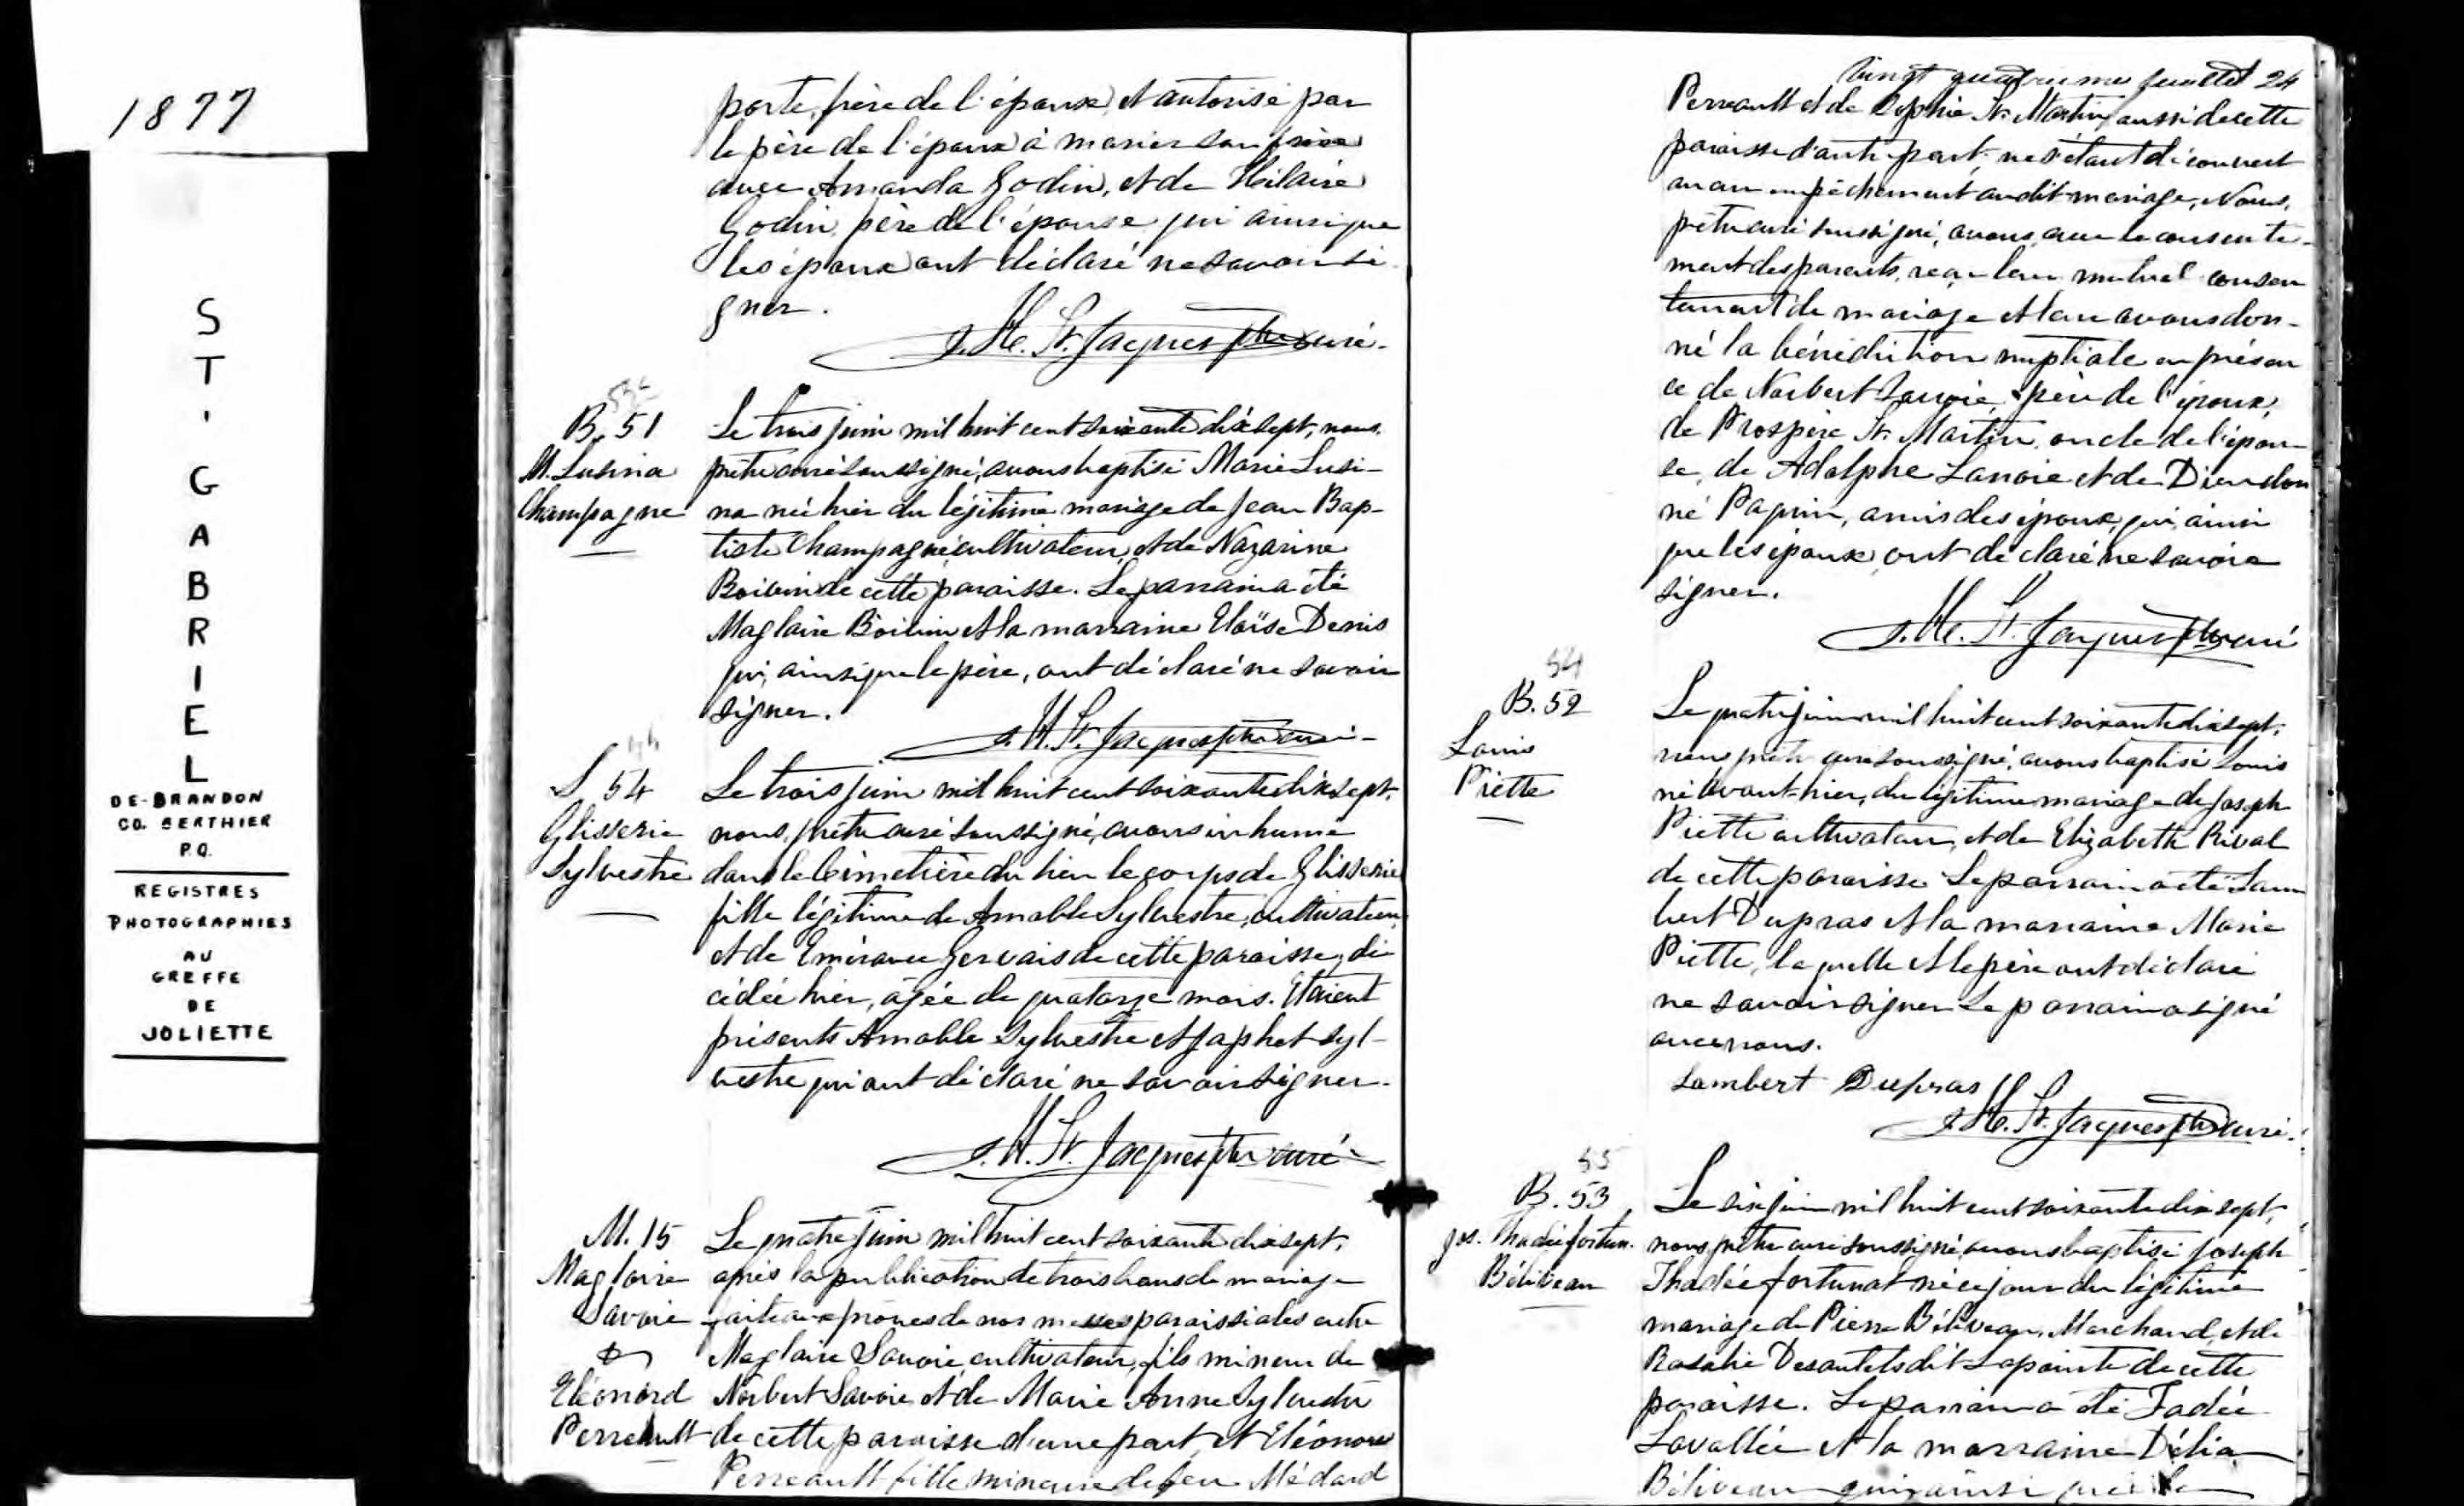 1877
ST'GABRIEL
DE-BRANDON
CO. BERTHIER
P.Q.
REGISTRES
PHOTOGRAPHIES
AU
GREFFE
DE
JOLIETTE
porte, frère de l'époux, et autorisé par
le père de l'époux à marier son
avec Amanda Godin, et de Hilaire
Godin, père de l'épouse qui ainsi que
les époux ont déclaré ne savoir si
gner.
J. M. St. Jacques ptre curé.
B. 51
M. Lusina
Champagne
Le trois juin mil huit cent soixante dix sept, nous,
prêtre curé soussigné, avons baptisé Marie Lusi-
na née hier du légitime mariage de Jean Bap-
tiste Champagne cultivateur, et de Nazarine
Boivin de cette paroisse. Le parrain a été
Maglaire Boivin et la marraine Eloïse Denis
qui, ainsi que le père, ont déclaré ne savoir
signer.
J. M. St. Jacques ptre curé.
S 54
Glisserie
Sylvestre
Le trois juin mil huit cent soixante dix sept,
nous, prêtre curé soussigné, avons inhumé
dans le cimetière du lieu le corps de Glisserie
fille légitime de Amable Sylvestre, cultivateur,
et de Emérance Gervais de cette paroisse, dé
cédée hier, âgée de quatorze mois. Etaient
présents Amable Sylvestre et Japhet Syl-
vestre qui ont déclaré ne savoir signer.
J. M. St. Jacques ptre curé
M. 15
Magloire
Savoie
&
Eléonord
Perreault
Le quatre juin mil huit cent soixante dix sept,
après la publication de trois bans de mariage
faite aux prônes de nos messes paroissiales entre
Maglaire Savoie cultivateur, fils mineur de
Norbert Savoie et de Marie Anne Sylvestre
de cette paroisse d'une part, et Eléonore
Perreault fille mineure de feu Médard
vingt quatrième feuillet 24
Perreault et de Sophie St. Martin aussi de cette
paroisse d'autre part, ne s'étant découvert
aucun empêchement au dit mariage, Nous,
prêtre curé soussigné, avons, avec le consente-
ment des parents, reçu leur mutuel consen
tement de mariage et leur avons don-
né la bénédiction nuptiale en présen
ce de Norbert Savoie, père de l'époux,
de Prospère St. Martin, oncle de l'épou-
se, de Adolphe Lanoie et de Dieudon
né Paquin, amis des époux, qui, ainsi
que les époux, ont déclaré ne savoir
signer.
J. M. St. Jacques ptre curé
54
B. 52
Louis
Piette
Le quatre juin mil huit cent soixante dix sept,
nous prêtre curé soussigné, avons baptisé Louis
né avant-hier, du légitime mariage de Joseph
Piette cultivateur, et de Elizabeth Rival
de cette paroisse. Le parrain a été Lam
bert Dupras et la marraine Marie
Piette, laquelle et le père ont déclaré
ne savoir signer. Le parrain a signé
avec nous.
Lambert Dupras
J. M. St. Jacques ptre curé.
55
B. 53
Jos. Thadée fortun.
Béliveau
Le six juin mil huit cent soixante dix sept,
nous, prêtre curé soussigné avons baptisé Joseph
Thadée fortunat né ce jour du légitime
mariage de Pierre Béliveau, Marchand, et de
Rosalie Desautels dit Lapointe de cette
paroisse. Le parrain a été Fadée
Lavallée et la marraine Délia
Béliveau qui, ainsi que le